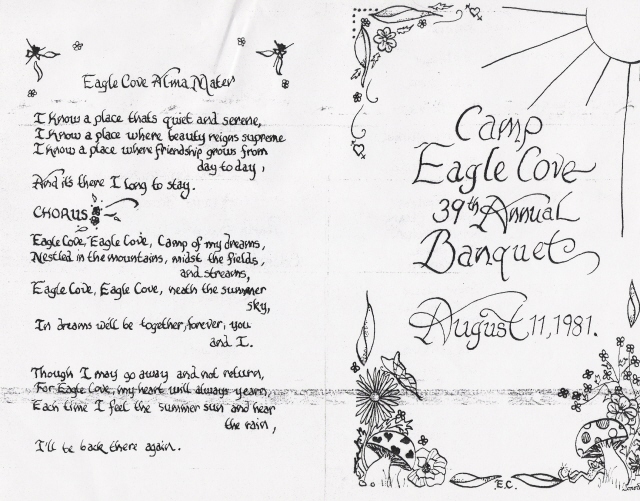 Eagle Cove Alma Mater
I know a place thats quiet and serene,
I know a place where beauty reigns supreme
I know a place where friendship grows from
day to day,
And it's there I long to stay.
CHORUS
Eagle Cove, Eagle Cove, Camp of my dreams,
Nestled in the mountains, midst the fields,
and streams,
Eagle Cove, Eagle Cove, neath the summer
sky,
In dreams we'll be together, forever, you
and I.
Though I may go away and not return,
For Eagle Cove, my heart will always yearn,
Each time I feel the summer sun and hear
the rain,
I'll be back there again.
Camp
Eagle Cove
39th Annual
Banquet
August 11, 1981.
E.C.